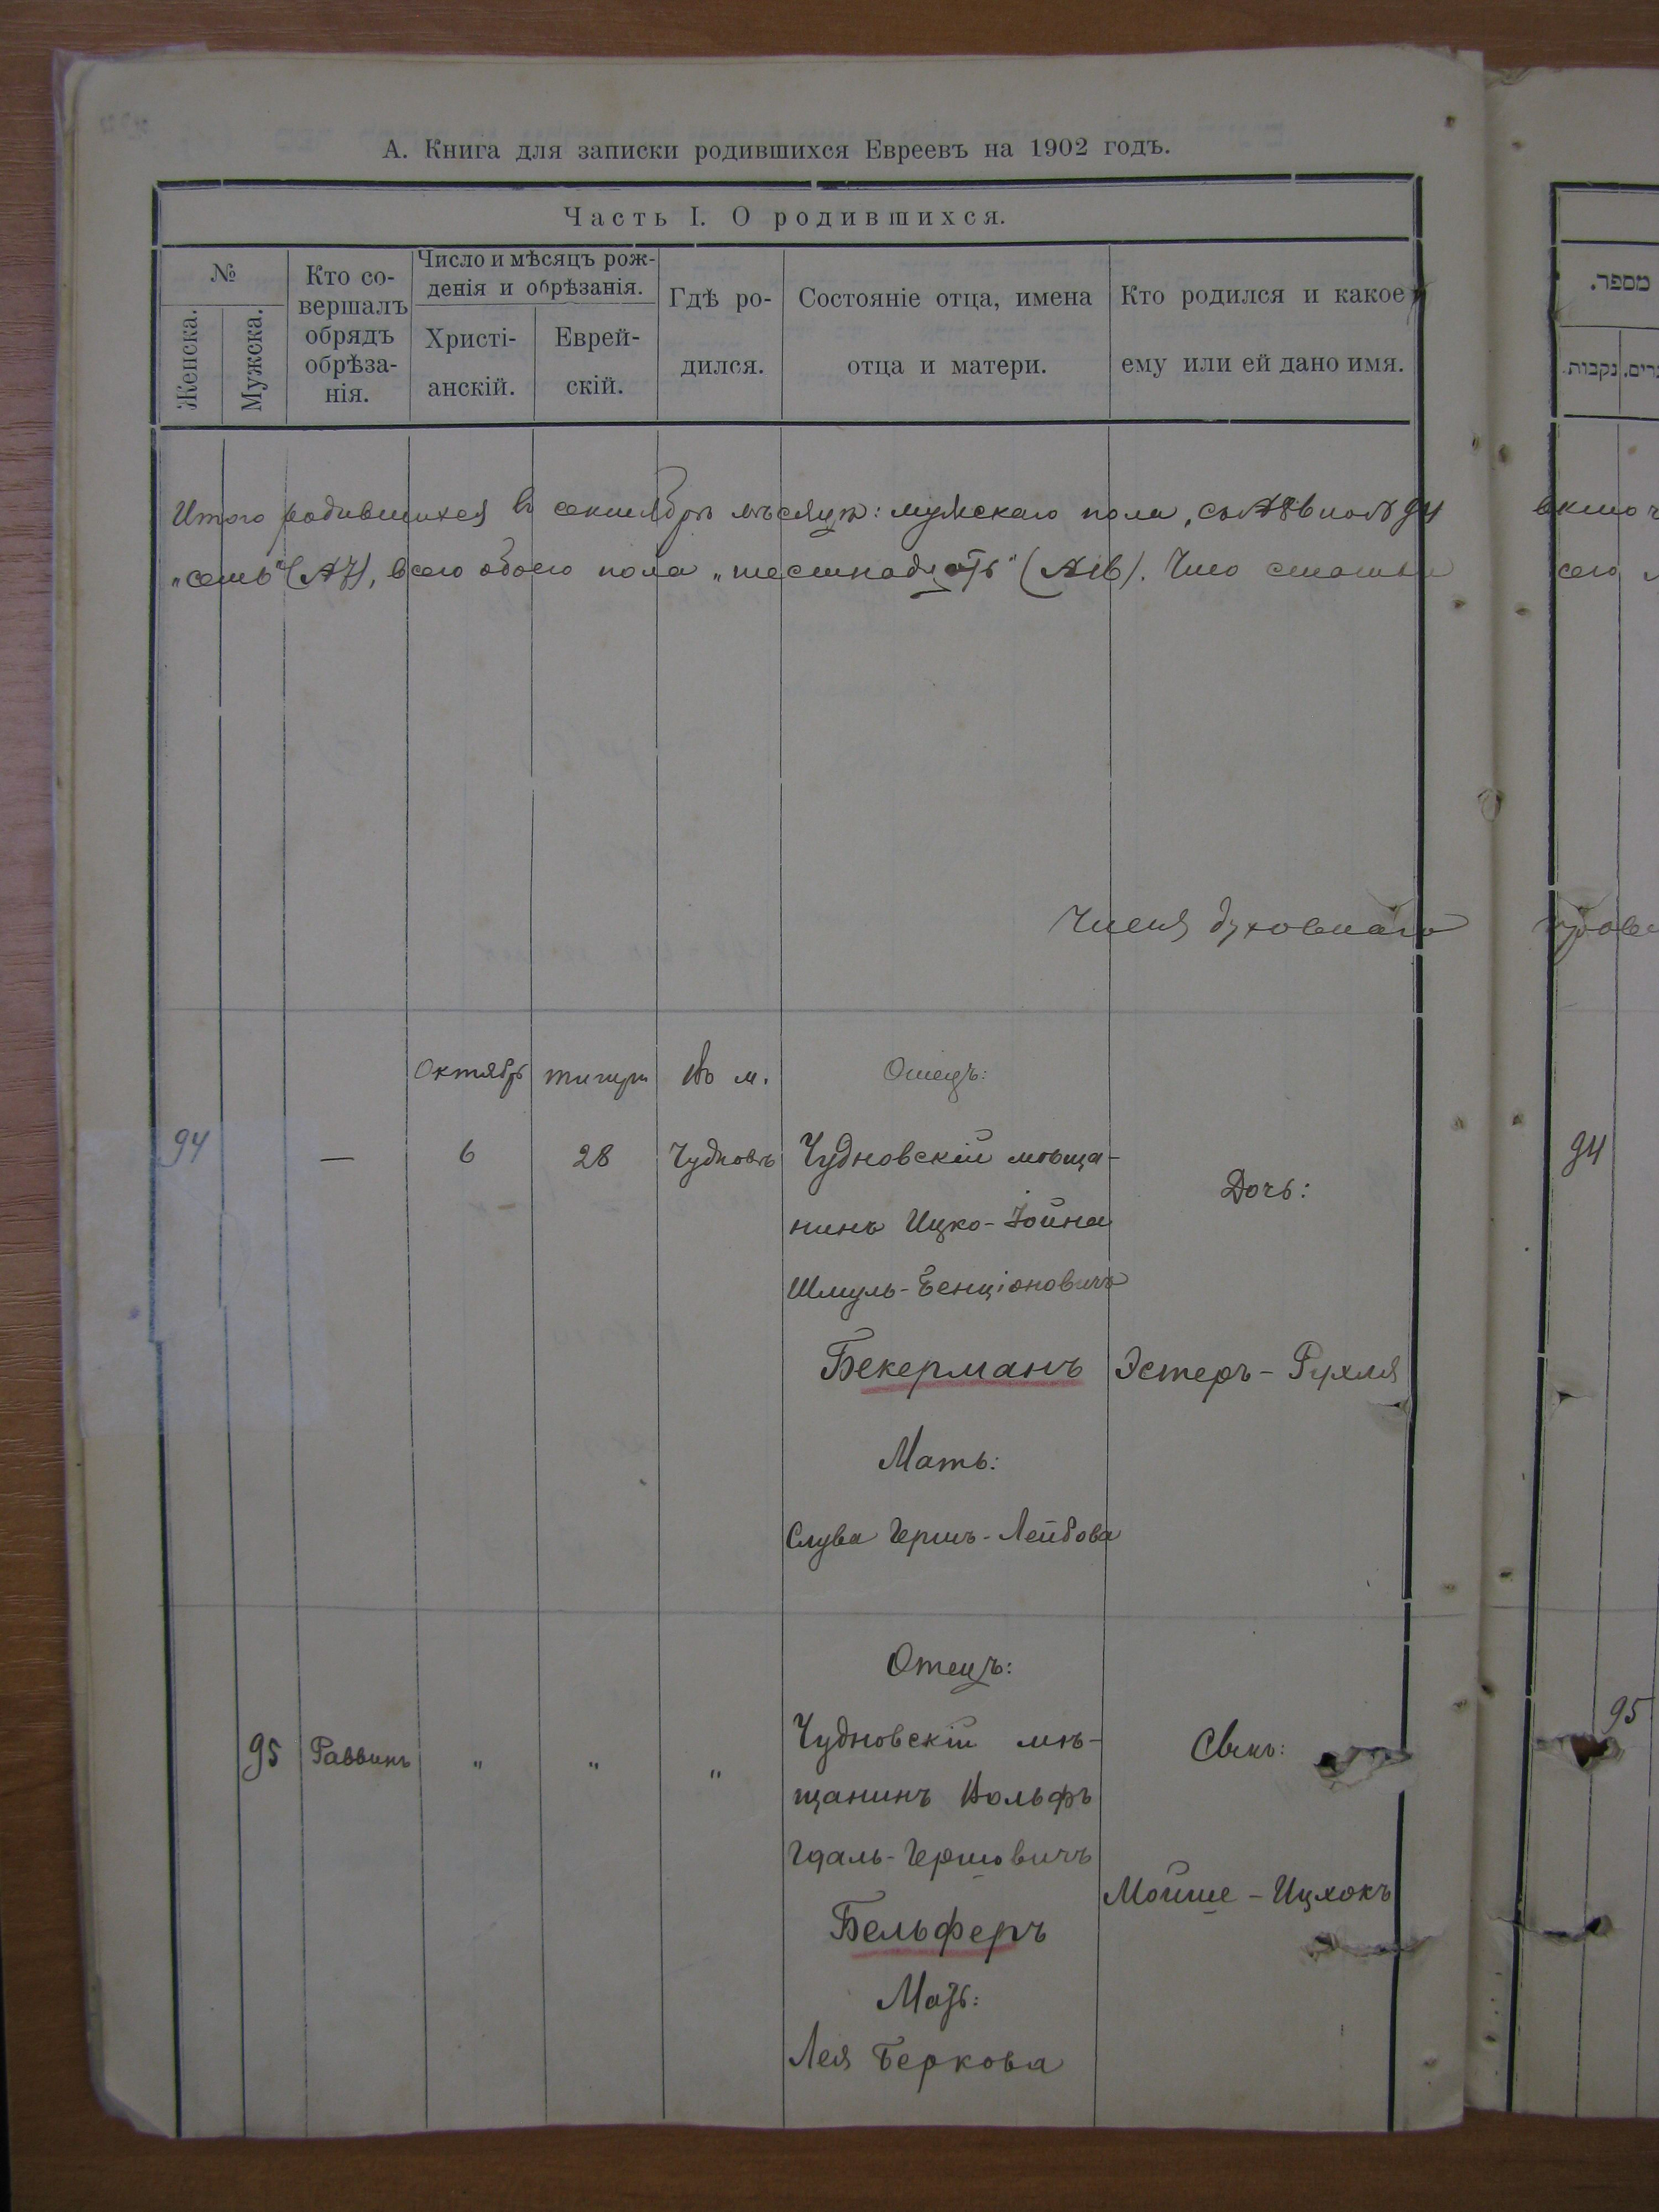 А. Книга для записки родившихся Евреевъ на 1902 годъ.
Часть I. О родившихся.
№
Женска.
Мужска.
Кто со-
вершалъ
обрядъ
обрѣза-
нія.
Число и мѣсяцъ рож-
денія и обрѣзанія.
Христі-
анскій.
Еврей-
скій.
Гдѣ ро-
дился.
Состояніе отца, имена
отца и матери.
Кто родился и какое
ему или ей дано имя.
Итого родившихся въ сентябрѣ мѣсяцѣ: мужскаго пола, съ №
„семь" (№7), всего обоего пола „шестнадцать" (№16). Что
Члены духовнаго
Октябрь
тишри
Въ м.
Отецъ:
94
—
6
28
Чудновѣ
Чудновскій мѣща-
нинъ Ицко-Іойна
Шмуль-Бенціоновичъ
Бекерманъ
Мать:
Слува Гершъ-Лейбова
Дочь:
Эстеръ-Рухля
95
Раввинъ
"
"
"
Отецъ:
Чудновскій мѣ-
щанинъ Вольфъ
Гдаль-Гершовичъ
Бельферъ
Мать:
Лея Беркова
Сынъ:
Мойше-Ицхокъ
מספר.
נקבות
94
95